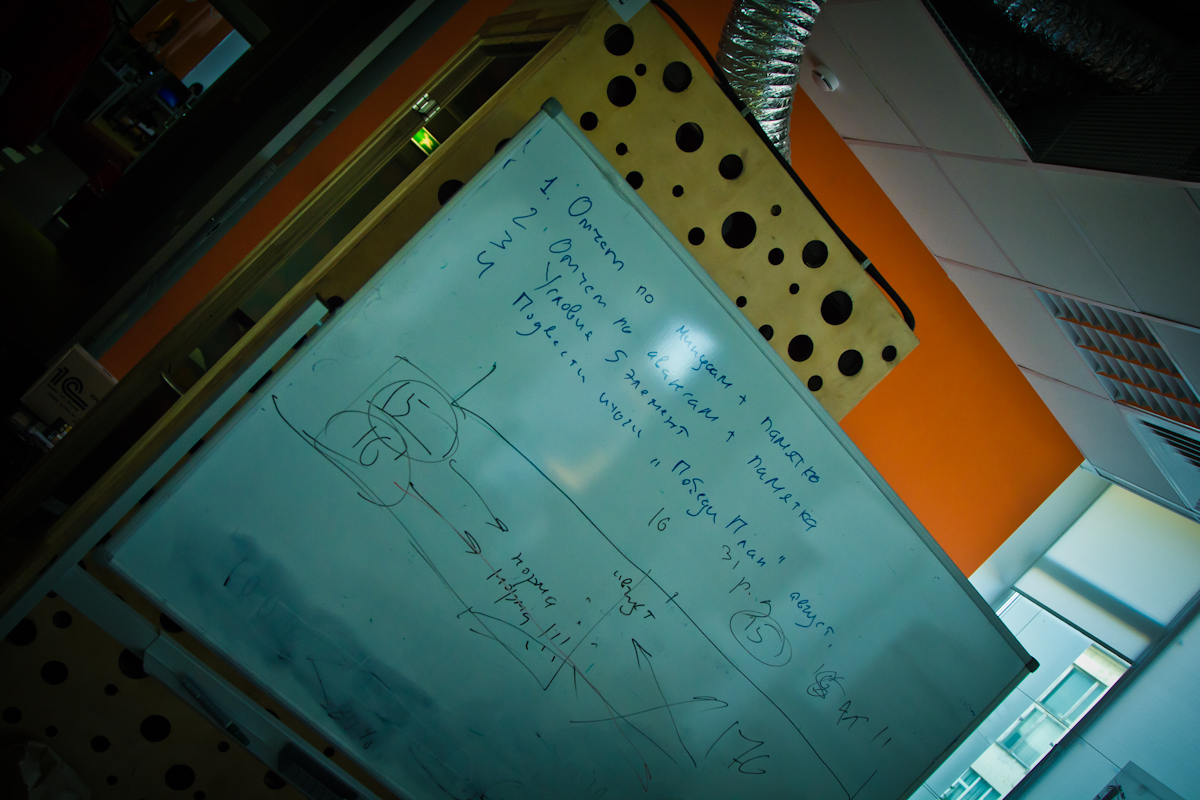 1. Отчет по Минусам + памятка
2. Отчет по авансам + памятка
3 Условия 5 элемент
4 Подвести итоги "Победи План" август"
16
31
15
15
16
норма
норма !!!
"август
176
1С